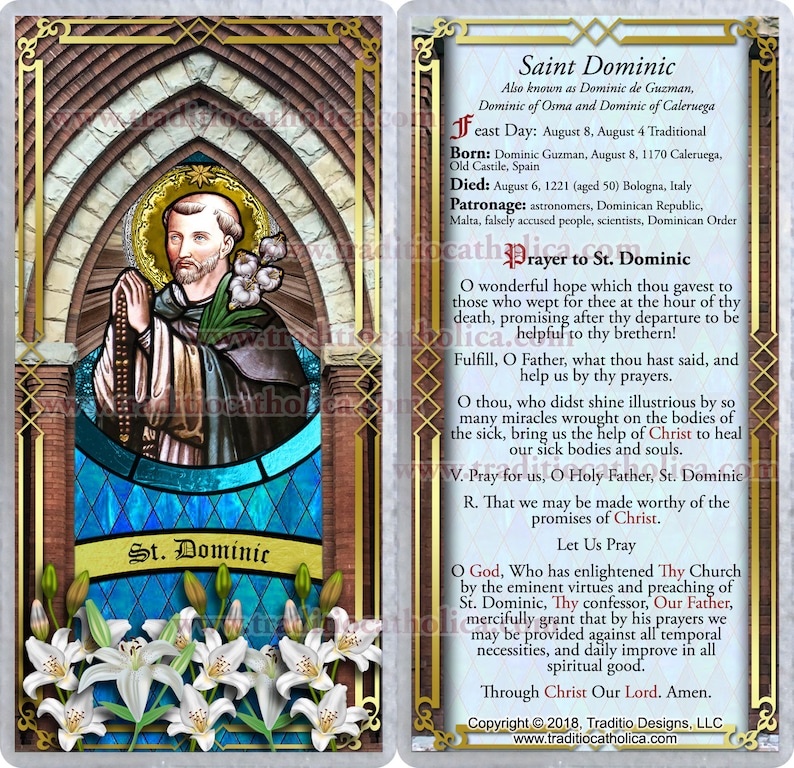 www.traditiocatholica.com
www.traditiocatholica.com
www.traditiocatholica.com
St. Dominic
www.traditiocatholica.com
Saint Dominic
Also known as Dominic de Guzman,
Dominic of Osma and Dominic of Caleruega
Feast Day: August 8, August 4 Traditional
Born: Dominic Guzman, August 8, 1170 Caleruega,
Old Castile, Spain
Died: August 6, 1221 (aged 50) Bologna, Italy
Patronage: astronomers, Dominican Republic,
Malta, falsely accused people, scientists, Dominican Order
www.traditiocatholica.com
Prayer to St. Dominic
O wonderful hope which thou gavest to
those who wept for thee at the hour of thy
death, promising after thy departure to be
helpful to thy brethern!
Fulfill, O Father, what thou hast said, and
help us by thy prayers.
O thou, who didst shine illustrious by so
many miracles wrought on the bodies of
the sick, bring us the help of Christ to heal
our sick bodies and souls.
www.traditiocatholica.com
V. Pray for us, O Holy Father, St. Dominic
R. That we may be made worthy of the
promises of Christ.
Let Us Pray
O God, Who has enlightened Thy Church
by the eminent virtues and preaching of
St. Dominic, Thy confessor, Our Father,
mercifully grant that by his prayers we
may be provided against all temporal
necessities, and daily improve in all
spiritual good.
Through Christ Our Lord. Amen.
Copyright © 2018, Traditio Designs, LLC
www.traditiocatholica.com